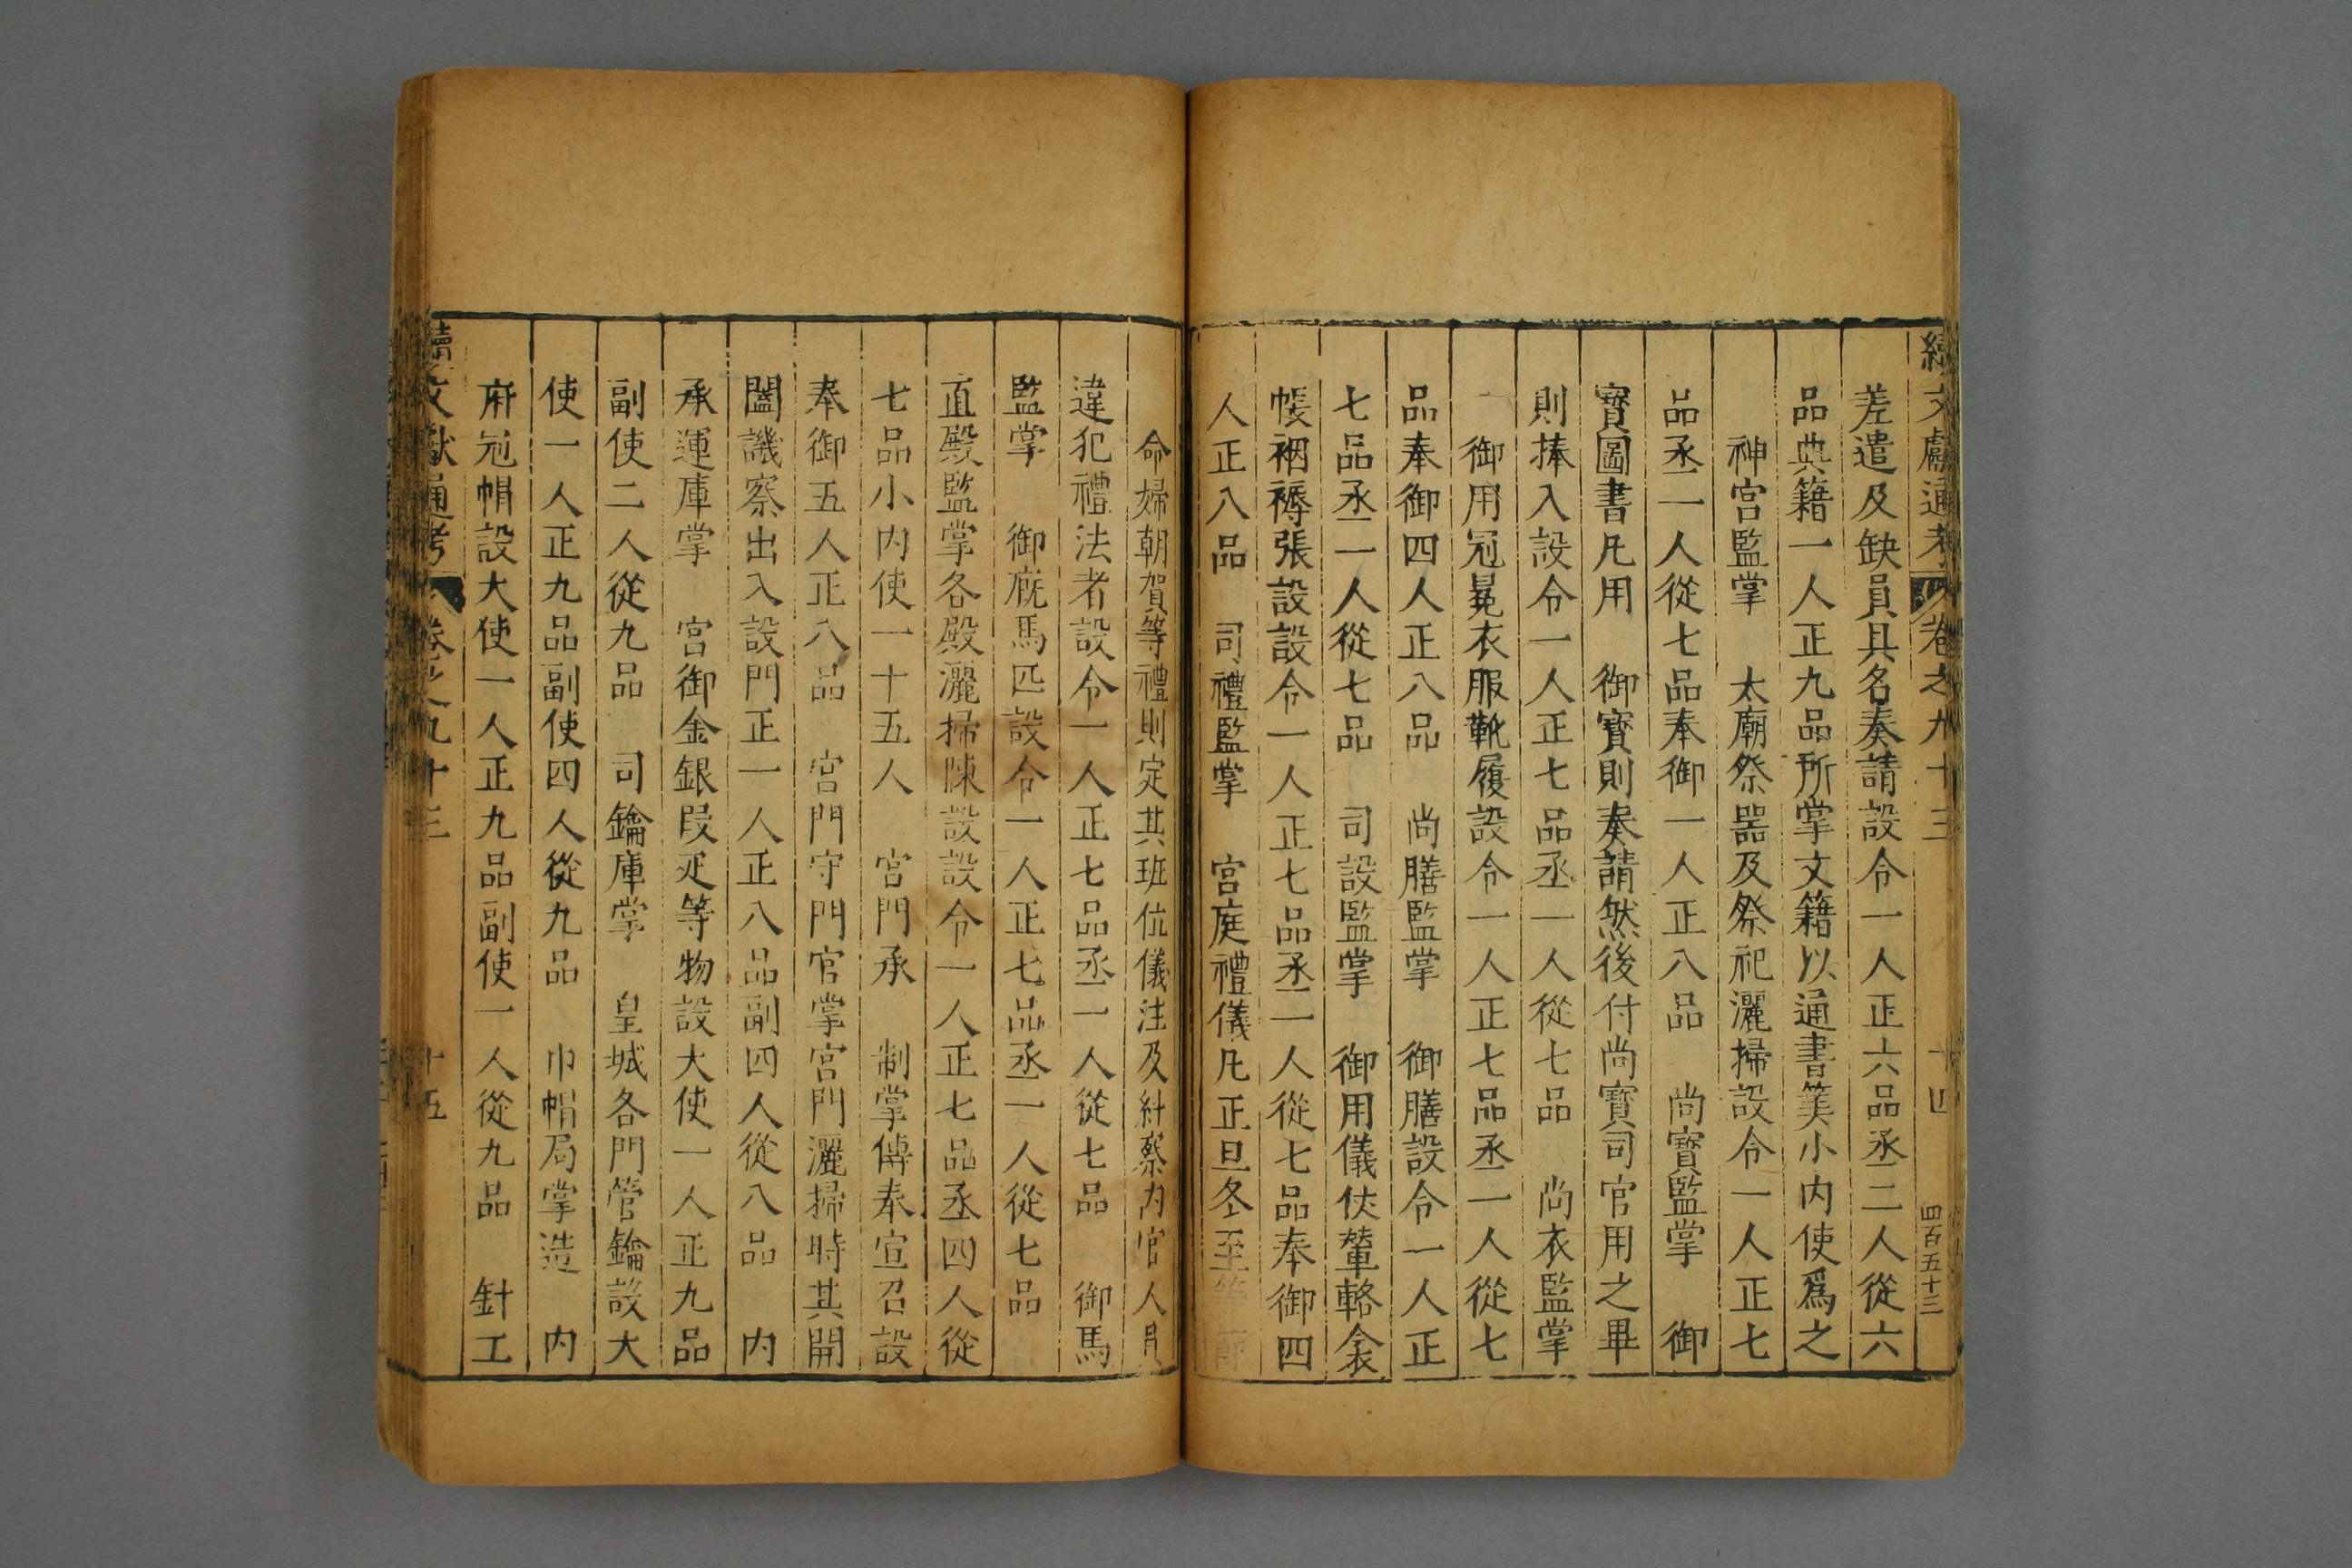 續文獻通考 卷之九十三 十四 四百五十三
差遣及缺員具名奏請設令一人正六品丞二人從六
品典籍一人正九品所掌文籍以通書筭小内使爲之
神宮監掌 太廟祭器及祭祀灑掃設令一人正七
品丞一人從七品奉御一人正八品 尚寶監掌 御
寳圖書凡用 御寳則奏請然後付尚寳司官用之畢
則捧入設令一人正七品丞一人從七品 尚衣監掌
御用冠冕衣服靴履設令一人正七品丞一人從七
品奉御四人正八品 尚膳監掌 御膳設令一人正
七品丞一人從七品 司設監掌 御用儀仗輦輅衾
帳裀褥張設設令一人正七品丞一人從七品奉御四
人正八品 司禮監掌 宮庭禮儀凡正旦冬至等節
命婦朝賀等禮則定其班位儀注及糾察内官人員
違犯禮法者設令一人正七品丞一人從七品 御馬
監掌 御廐馬匹設令一人正七品丞一人從七品
直殿監掌各殿灑掃陳設設令一人正七品丞四人從
七品小内使一十五人 宮門承 制掌傳奉宣召設
奉御五人正八品 宮門守門官掌宮門灑掃時其開
闔譏察出入設門正一人正八品副四人從八品 内
承運庫掌 宮御金銀叚疋等物設大使一人正九品
副使二人從九品 司鑰庫掌 皇城各門管鑰設大
使一人正九品副使四人從九品 巾帽局掌造 内
府冠帽設大使一人正九品副使一人從九品 針工
續文獻通考 卷之九十三 十五